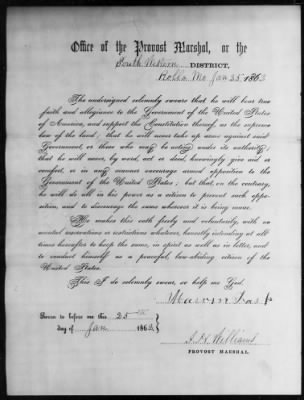 Office of the Provost Marshal, or the
South Western DISTRICT,
Rolla Mo. Jan 25 1863
The undersigned solemnly swears that he will bear true
faith and allegiance to the Government of the United States
of America, and support the Constitution thereof as the supreme
law of the land; that he will never take up arms against said
Government, or those who may be acting under its authority;
that he will never, by word, act or deed, knowingly give aid or
comfort, or in any manner encourage armed opposition to the
Government of the United States; but that, on the contrary,
he will do all in his power as a citizen to prevent such oppo-
sition, and to discourage the same wherever it is being made.
He makes this oath freely and voluntarily, with no
mental reservations or restrictions whatever, honestly intending at all
times hereafter to keep the same, in spirit as well as in letter, and
to conduct himself as a peaceful, law-abiding citizen of the
United States.
This I do solemnly swear, so help me God.
Marvin
Sworn to before me this 25th
day of Jan 1863
Williams
PROVOST MARSHAL.